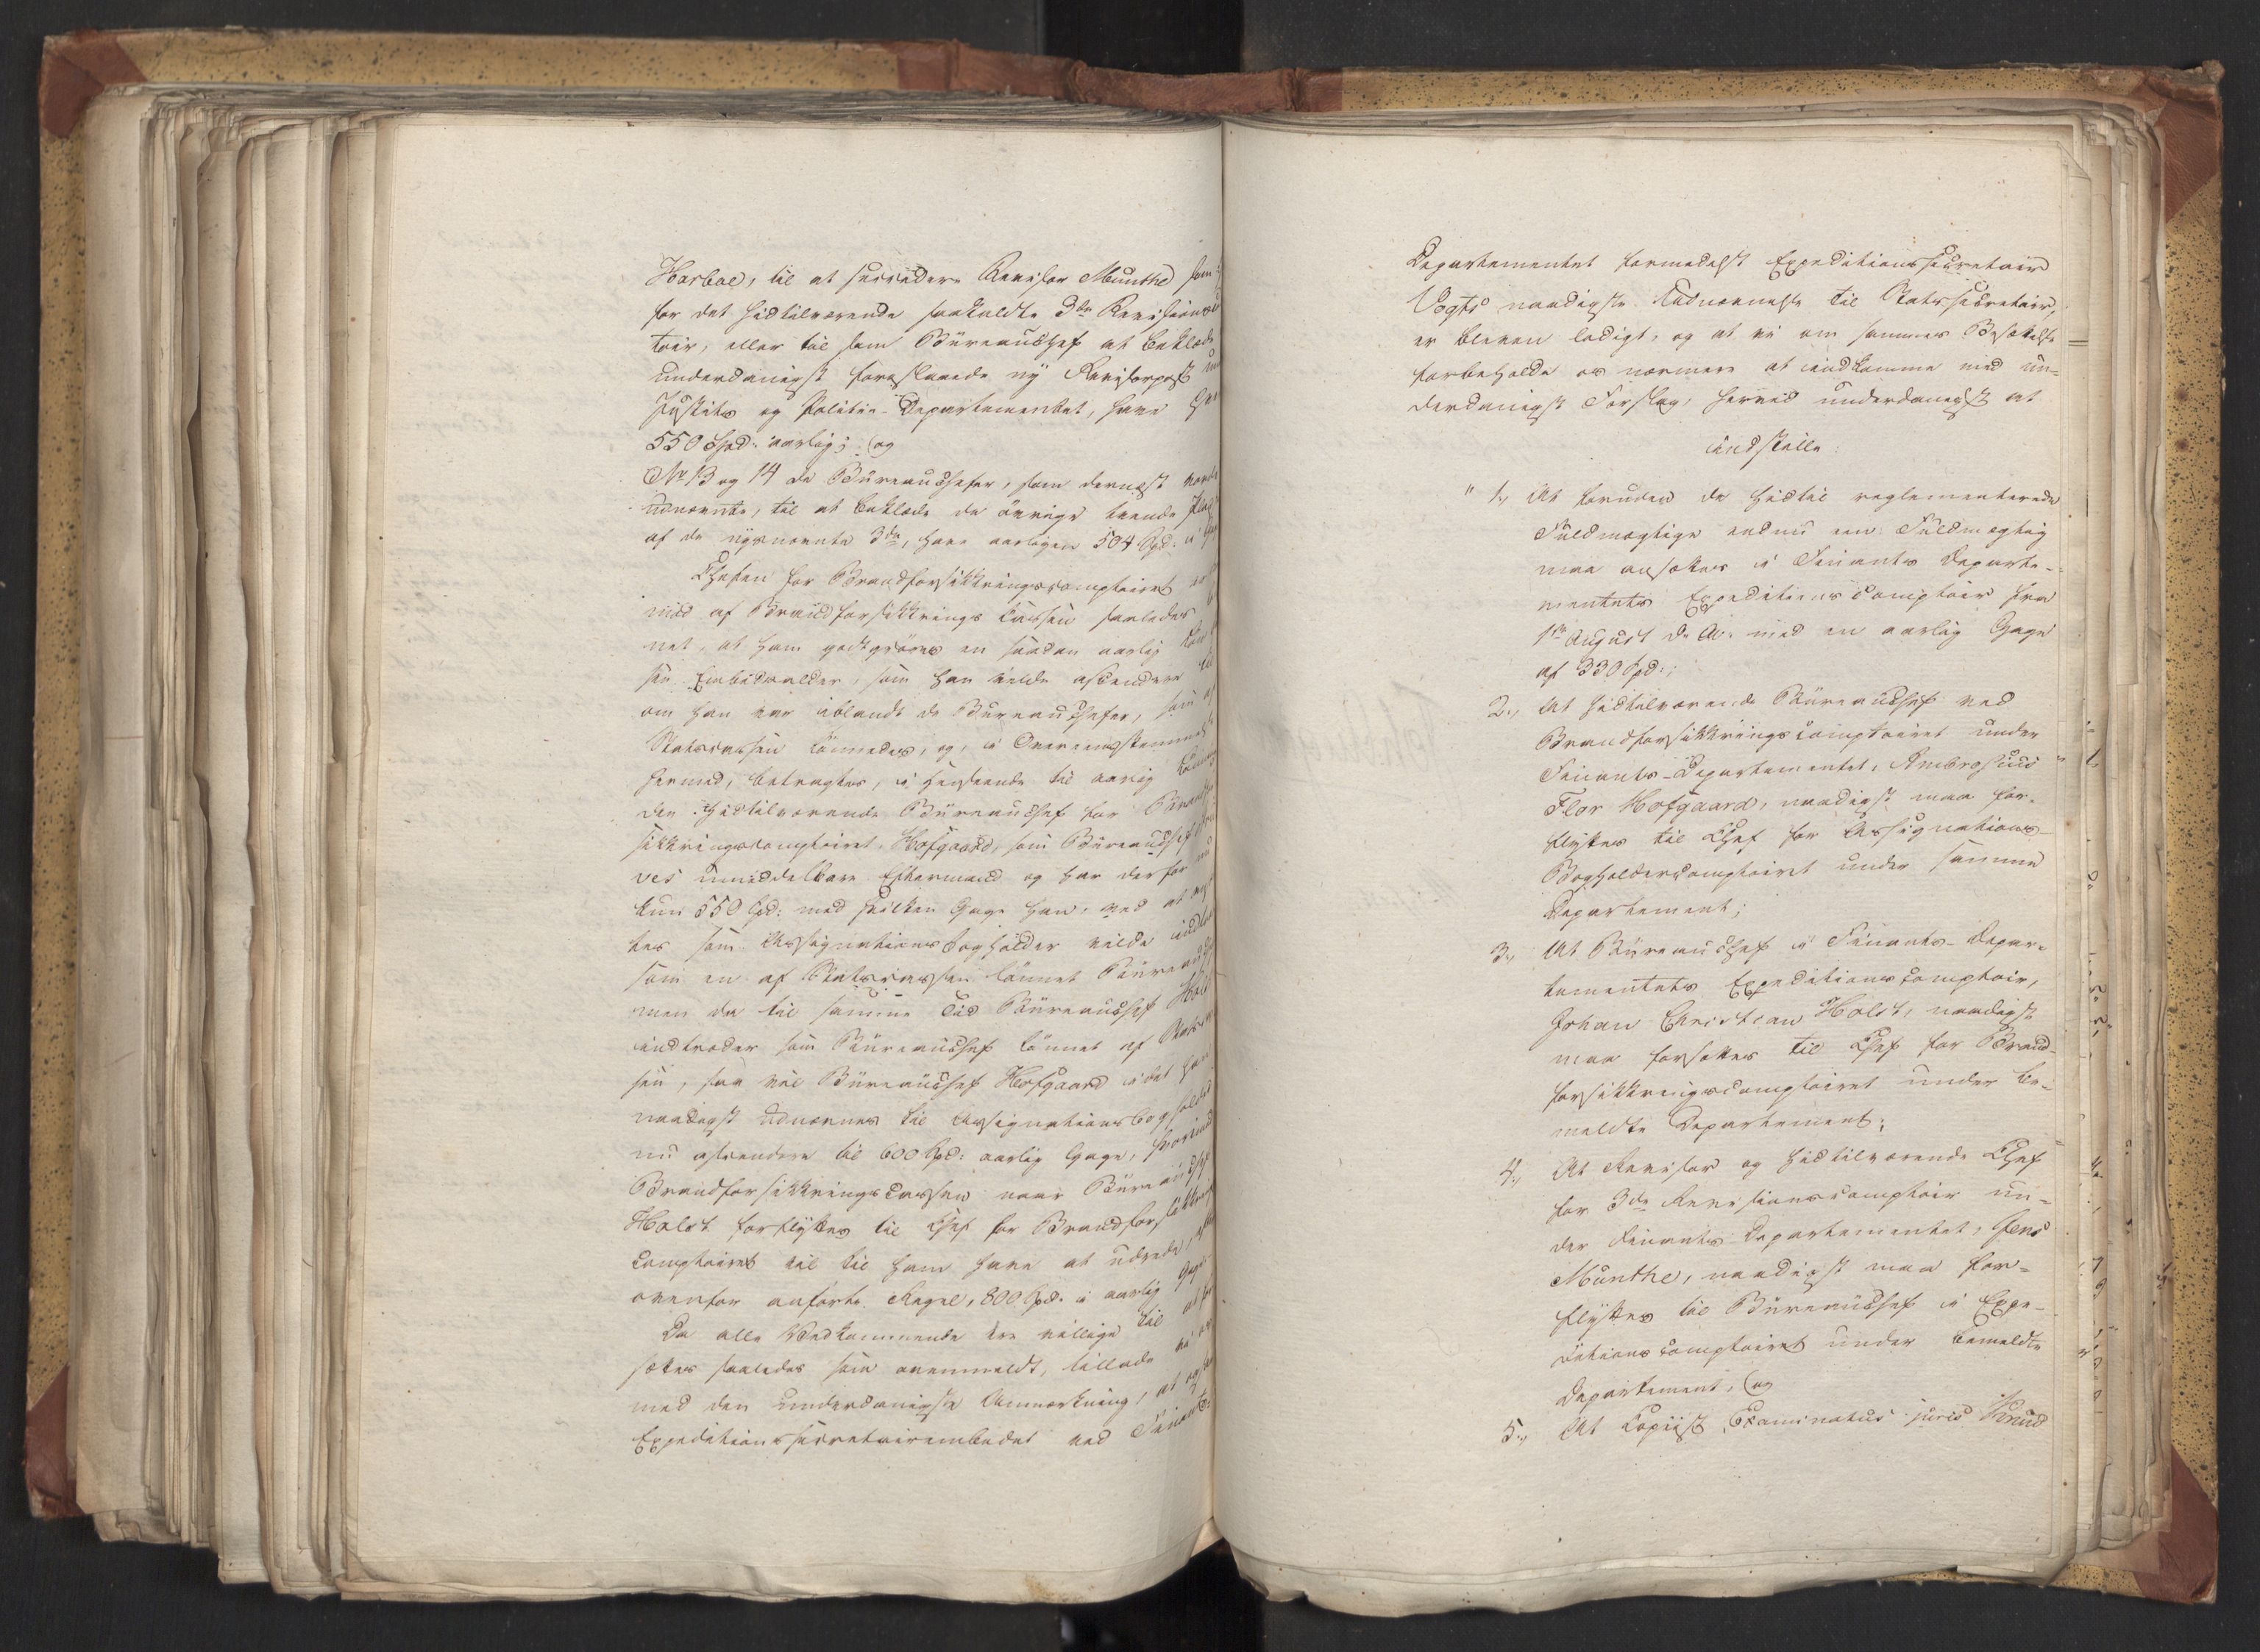 Harboe, til at succedere Revisor Munthe som
for det hidtilværende saakaldte 3die Revisions
toir, eller til som Büreauchef at beklæde
underdanigst foreslaaede ny Revisorpost
Justits og Politie-Departementet, have
550 Spd: aarlig; og
No 13 og 14 de Büreauchefer, som dernæst
udnævnte, til at beklæde de øvrige tvende
af de nysnævnte 3de, have aarligen 504 Spd: i
Chefen for Brandforsikkringscomptoiret
med af Brandforsikkrings Cassen saaledes
net, at ham godtgiøres en saadan aarlig
sin Embedsalder, som han vilde ascendere
om han var iblandt de Büreauchefer, som
Statscassen lønnedes, og, i Overeensstemmelse
hermed, betragtes, i Henseende til aarlig
den hidtilværende Büreauchef for Brandfor
sikkringscomptoiret, Hofgaard, som Büreauchef
ves umiddelbare Eftermand og har derfor
kun 550 Spd: med hvilken Gage han, ved at
tes som Assignationsbogholder vilde
som en af Statscassen lønnet Büreauchef
men da til samme Tid Büreauchef Holst
indtræder som Büreauchef lønnet af
sen, saa vil Büreauchef Hofgaard i det han
naadigst udnævnes til Assignationsbogholder
nu ascendere til 600 Spd: aarlig Gage, hvorimod
Brandforsikkringscassen naar Büreauchef
Holst forflyttes til Chef for Brandforsikkrings
comptoiret vil til ham have at udrede,
ovenfor anførte Regel, 800 Spd: i aarlig Gage
Da alle Vedkommende ere villige til at
sættes saaledes som ovenmeldt, tillade vi os
med den underdanigste Anmærkning, at
Expeditionssecretairembedet ved Finants
Departementet formedelst Expeditionssecretair
Vogts naadigste Udnævnelse til Statssecretair,
er bleven ledigt, og at vi om sammes Besættelse
forbeholde os nærmere at indkomme med un-
derdanigst Forslag, herved underdanigst at
indstille:
" 1., At foruden de hidtil reglementerede
Fuldmægtige endnu een Fuldmægtig
maa ansættes i Finants Departe-
mentets Expeditions Comptoir fra
1ste August d: A: med en aarlig Gage
af 330 Spd:;
2., At hidtilværende Büreauchef ved
Brandforsikkringscomptoiret under
Finants-Departementet, Ambrosius
Flor Hofgaard, naadigst maa for-
flyttes til Chef for Assignations-
Bogholdercomptoiret under samme
Departement;
3., At Büreauchef i Finants-Depar-
tementets Expeditionscomptoir,
Johan Christian Holst, naadigst
maa forsættes til Chef for Brand-
forsikkringscomptoiret under be-
meldte Departement;
4., At Revisor og hidtilværende Chef
for 3die Revisionscomptoir un-
der Finants-Departementet, Jens
Munthe, naadigst maa for-
flyttes til Büreauchef i Expe-
ditions Comptoiret under bemeldte
Departement, og
5., At Copiist, Examinatus juris Knud